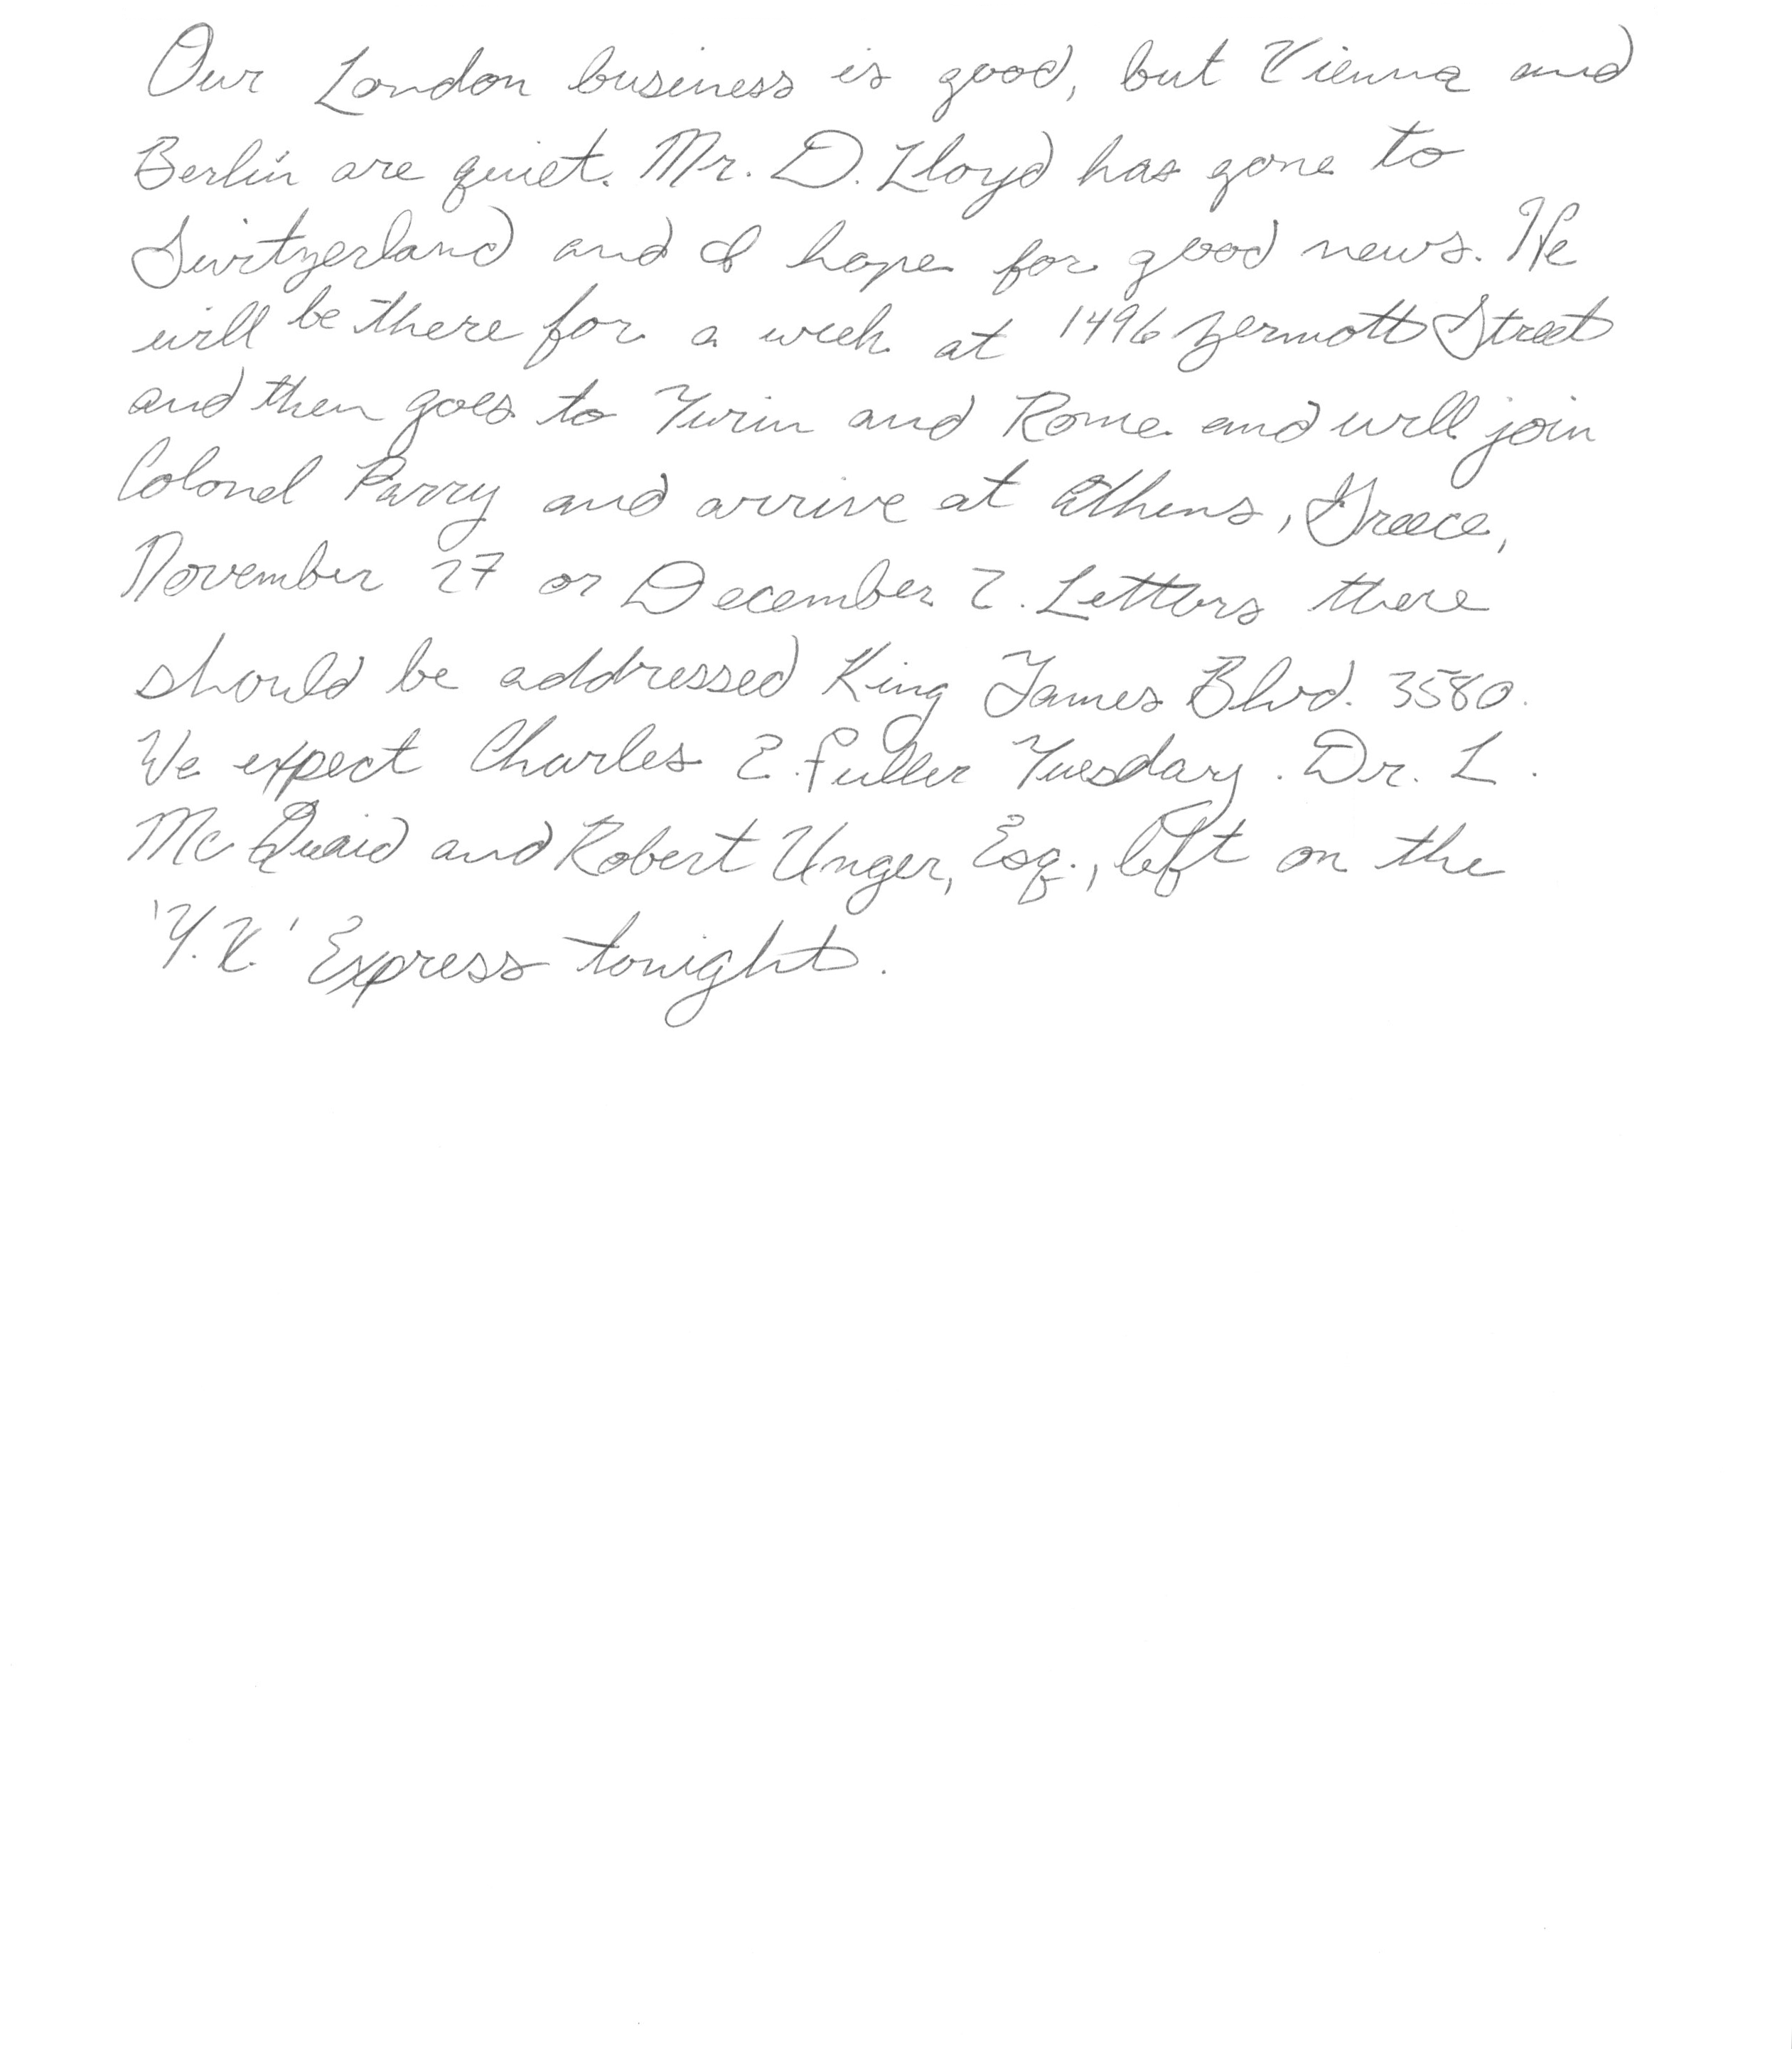 Our London business is good, but Vienna and
Berlin are quiet. Mr. D. Lloyd has gone to
Switzerland and I hope for good news. He
will be there for a week at 1496 Zermott Street
and then goes to Turin and Rome and will join
Colonel Parry and arrive at Athens, Greece,
November 27 or December 2. Letters there
should be addressed King James Blvd. 3580.
We expect Charles E. Fuller Tuesday. Dr. L.
McQuaid and Robert Unger, Esq., left on the
'Y.X.' Express tonight.